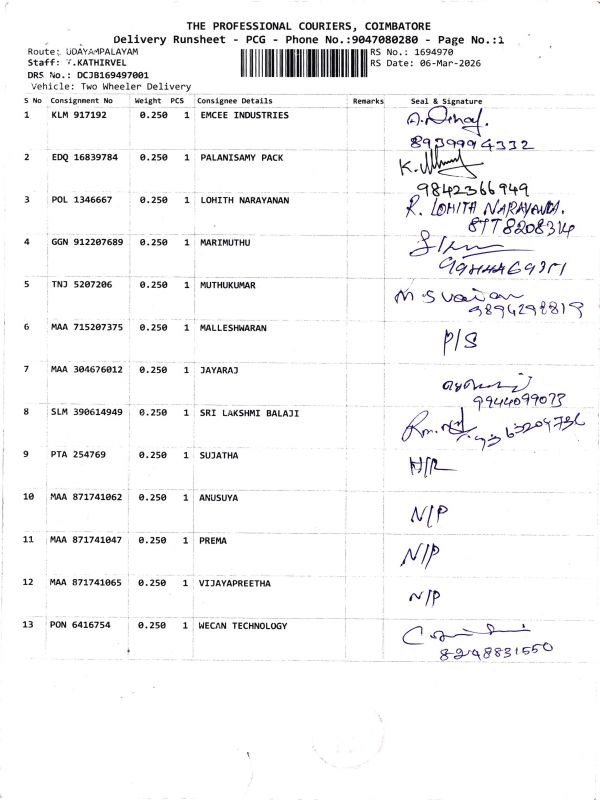 THE PROFESSIONAL COURIERS, COIMBATORE
Delivery Runsheet - PCG - Phone No.:9047080280 - Page No.:1
Route: UDAYAMPALAYAM
RS No.: 1694970
Staff: T.KATHIRVEL
RS Date: 06-Mar-2026
DRS No.: DCJB169497001
Vehicle: Two Wheeler Delivery
S No Consignment No Weight PCS Consignee Details Remarks Seal & Signature
1 KLM 917192 0.250 1 EMCEE INDUSTRIES
8939994332
2 EDQ 16839784 0.250 1 PALANISAMY PACK
9842366949
3 POL 1346667 0.250 1 LOHITH NARAYANAN R. LOHITH NARAYANAN.
8778208314
4 GGN 912207689 0.250 1 MARIMUTHU
5 TNJ 5207206 0.250 1 MUTHUKUMAR
9894298819
6 MAA 715207375 0.250 1 MALLESHWARAN P/S
7 MAA 304676012 0.250 1 JAYARAJ
9944099073
8 SLM 390614949 0.250 1 SRI LAKSHMI BALAJI
9 PTA 254769 0.250 1 SUJATHA H/R
10 MAA 871741062 0.250 1 ANUSUYA N/P
11 MAA 871741047 0.250 1 PREMA N/P
12 MAA 871741065 0.250 1 VIJAYAPREETHA N/P
13 PON 6416754 0.250 1 WECAN TECHNOLOGY